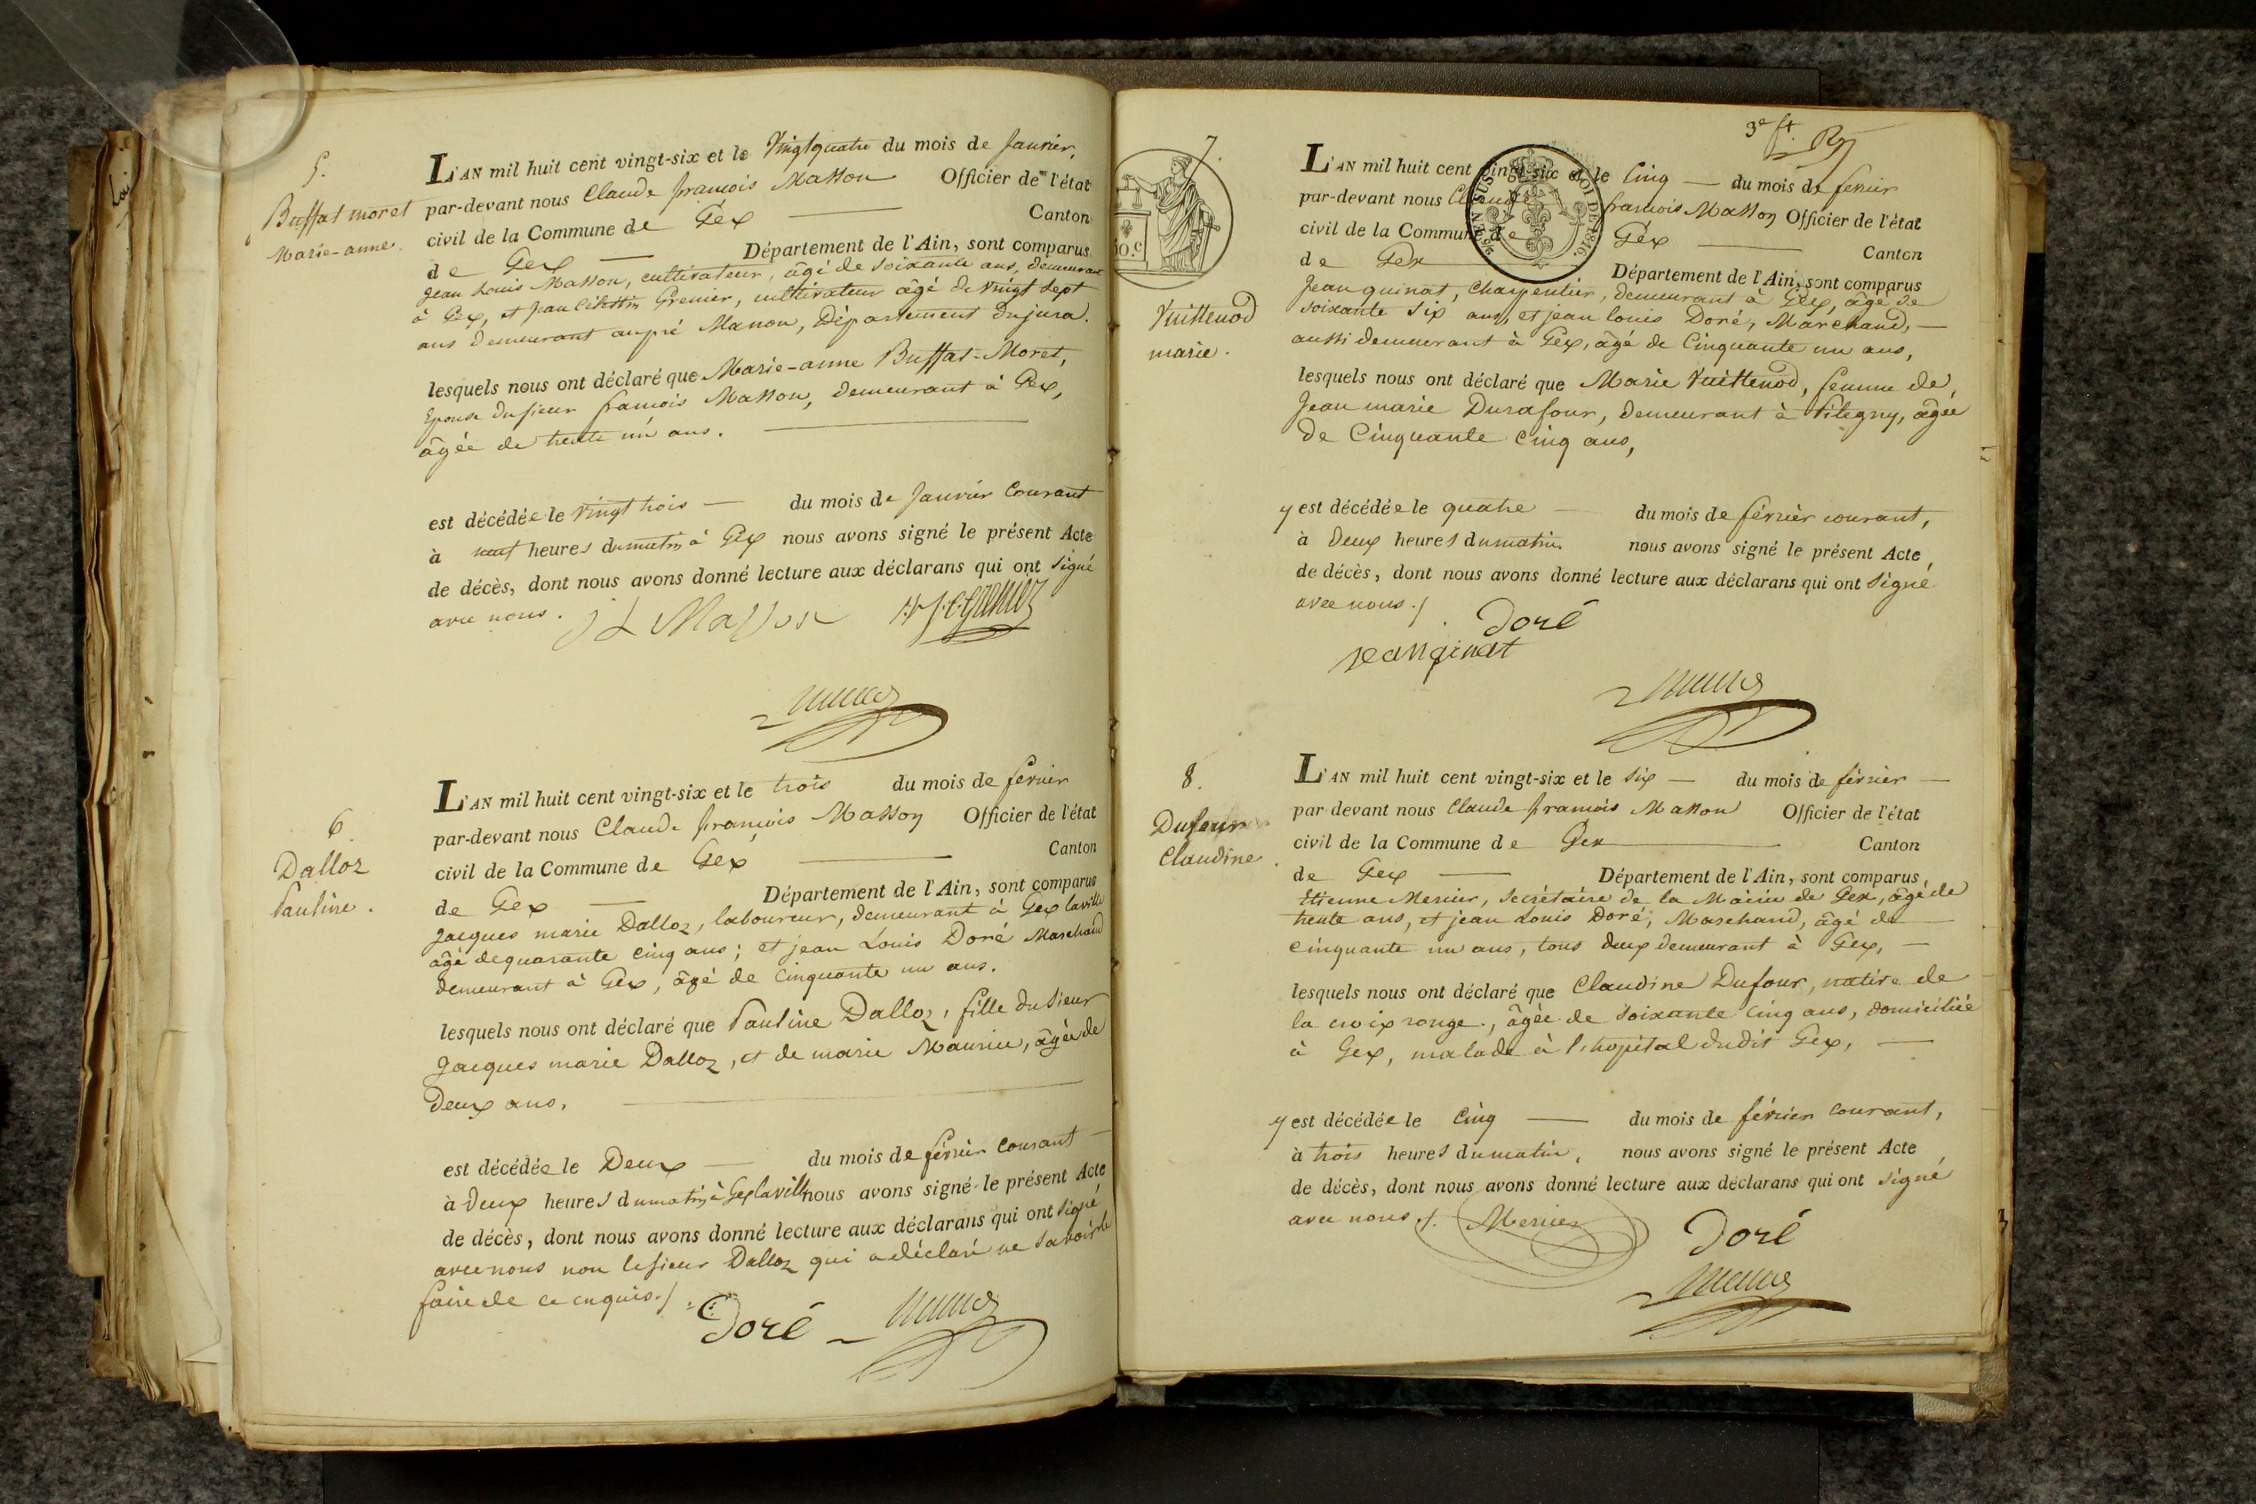 5.
Buffat moret
Marie-anne.
L'AN mil huit cent vingt-six et le Vingt quatre du mois de Janvier,
par-devant nous Claude françois Masson Officier de l'état
civil de la Commune de Gex Canton
de Gex Département de l'Ain, sont comparus
Jean Louis Masson, cultivateur, âgé de soixante ans, demeurant
à Gex, et Jean Grenier, cultivateur âgé de vingt sept
ans demeurant au pré Manon, Département du jura.
lesquels nous ont déclaré que Marie-anne Buffat-Moret,
Epouse du sieur françois Masson, demeurant à Gex,
âgée de trente un ans.
est décédée le vingt trois du mois de Janvier Courant
à neuf heures du matin à Gex nous avons signé le présent Acte
de décès, dont nous avons donné lecture aux déclarans qui ont signé
avec nous.
J L Masson J. C. Grenier
6.
Dalloz
Pauline.
L'AN mil huit cent vingt-six et le trois du mois de fevrier
par-devant nous Claude françois Masson Officier de l'état
civil de la Commune de Gex Canton
de Gex Département de l'Ain, sont comparus
Jacques marie Dalloz, laboureur, demeurant à Gex la ville
âgé de quarante cinq ans; et jean Louis Doré Marchand
demeurant à Gex, âgé de cinquante un ans.
lesquels nous ont déclaré que Pauline Dalloz, fille du Sieur
Jacques marie Dalloz, et de marie Maurice, âgée de
Deux ans,
est décédée le Deux du mois de février courant
à deux heures du matin à Gex la ville nous avons signé le présent Acte
de décès, dont nous avons donné lecture aux déclarans qui ont signé
avec nous non le sieur Dalloz qui a déclaré ne savoir le
faire de ce enquis./.
Doré
3e ft.
7.
Vuittenod
marie.
L'AN mil huit cent vingt-six et le Cinq du mois de fevrier
par-devant nous Claude françois Masson Officier de l'état
civil de la Commune de Gex Canton
de Gex Département de l'Ain, sont comparus
Jean quinat, Charpentier, demeurant à Gex, âgé de
soixante six ans, et jean louis Doré, Marchand,
aussi demeurant à Gex, âgé de Cinquante un ans,
lesquels nous ont déclaré que Marie Vuittenod, femme de
Jean marie Durafour, demeurant à Pitegny, âgée
de Cinquante cinq ans,
y est décédée le quatre du mois de février courant,
à Deux heures du matin nous avons signé le présent Acte
de décès, dont nous avons donné lecture aux déclarans qui ont signé
avec nous./.
Doré
8.
Dufour
Claudine.
L'AN mil huit cent vingt-six et le six du mois de février
par devant nous Claude françois Masson Officier de l'état
civil de la Commune de Gex Canton
de Gex Département de l'Ain, sont comparus
Etienne Mercier, Secrétaire de la Mairie de Gex, âgé de
trente ans, et jean Louis Doré, Marchand, âgé de
cinquante un ans, tous deux demeurant à Gex,
lesquels nous ont déclaré que Claudine Dufour, native de
la croix rouge, âgée de soixante cinq ans, domiciliée
à Gex, malade à l'hopital dudit Gex,
y est décédée le Cinq du mois de février courant,
à trois heures du matin, nous avons signé le présent Acte
de décès, dont nous avons donné lecture aux déclarans qui ont signé
avec nous./. Mercier Doré